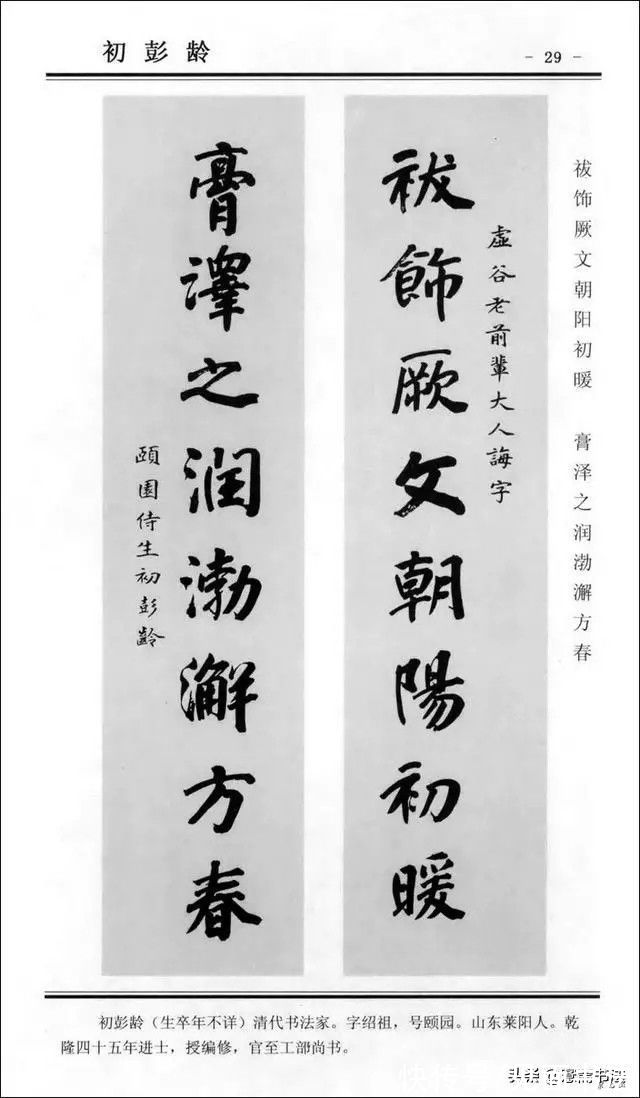 初彭龄
- 29 -
祓饰厥文朝阳初暖 膏泽之润渤澥方春
虚谷老前輩大人誨字
祓飾厥文朝陽初暖
膏澤之润渤澥方春
頤園侍生初彭齡
初彭龄（生卒年不详）清代书法家。字绍祖，号颐园。山东莱阳人。乾
隆四十五年进士，授编修，官至工部尚书。